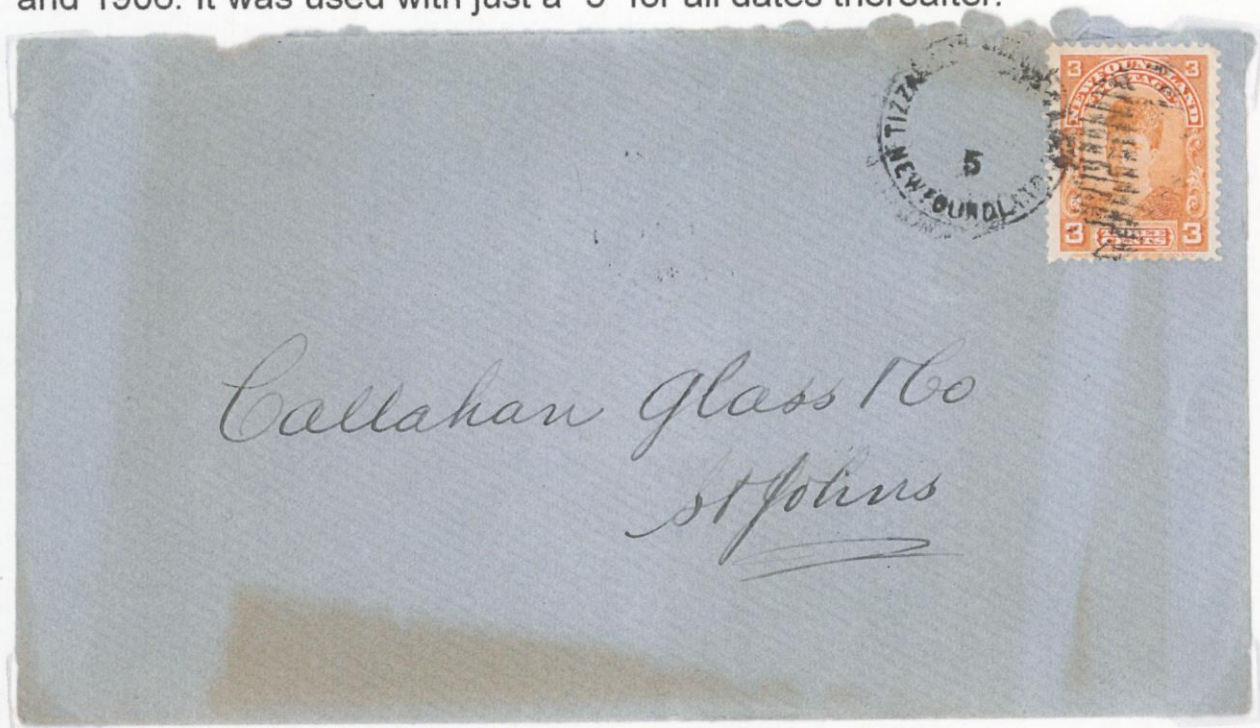 and 1906. It was used with just a "5" for all dates thereafter.
TIZZA
5
NEWFOUNDLAND
3 3
NEWFOUNDLAND
POSTAGE
3 THREE CENTS 3
Callahan Glass & Co
St Johns